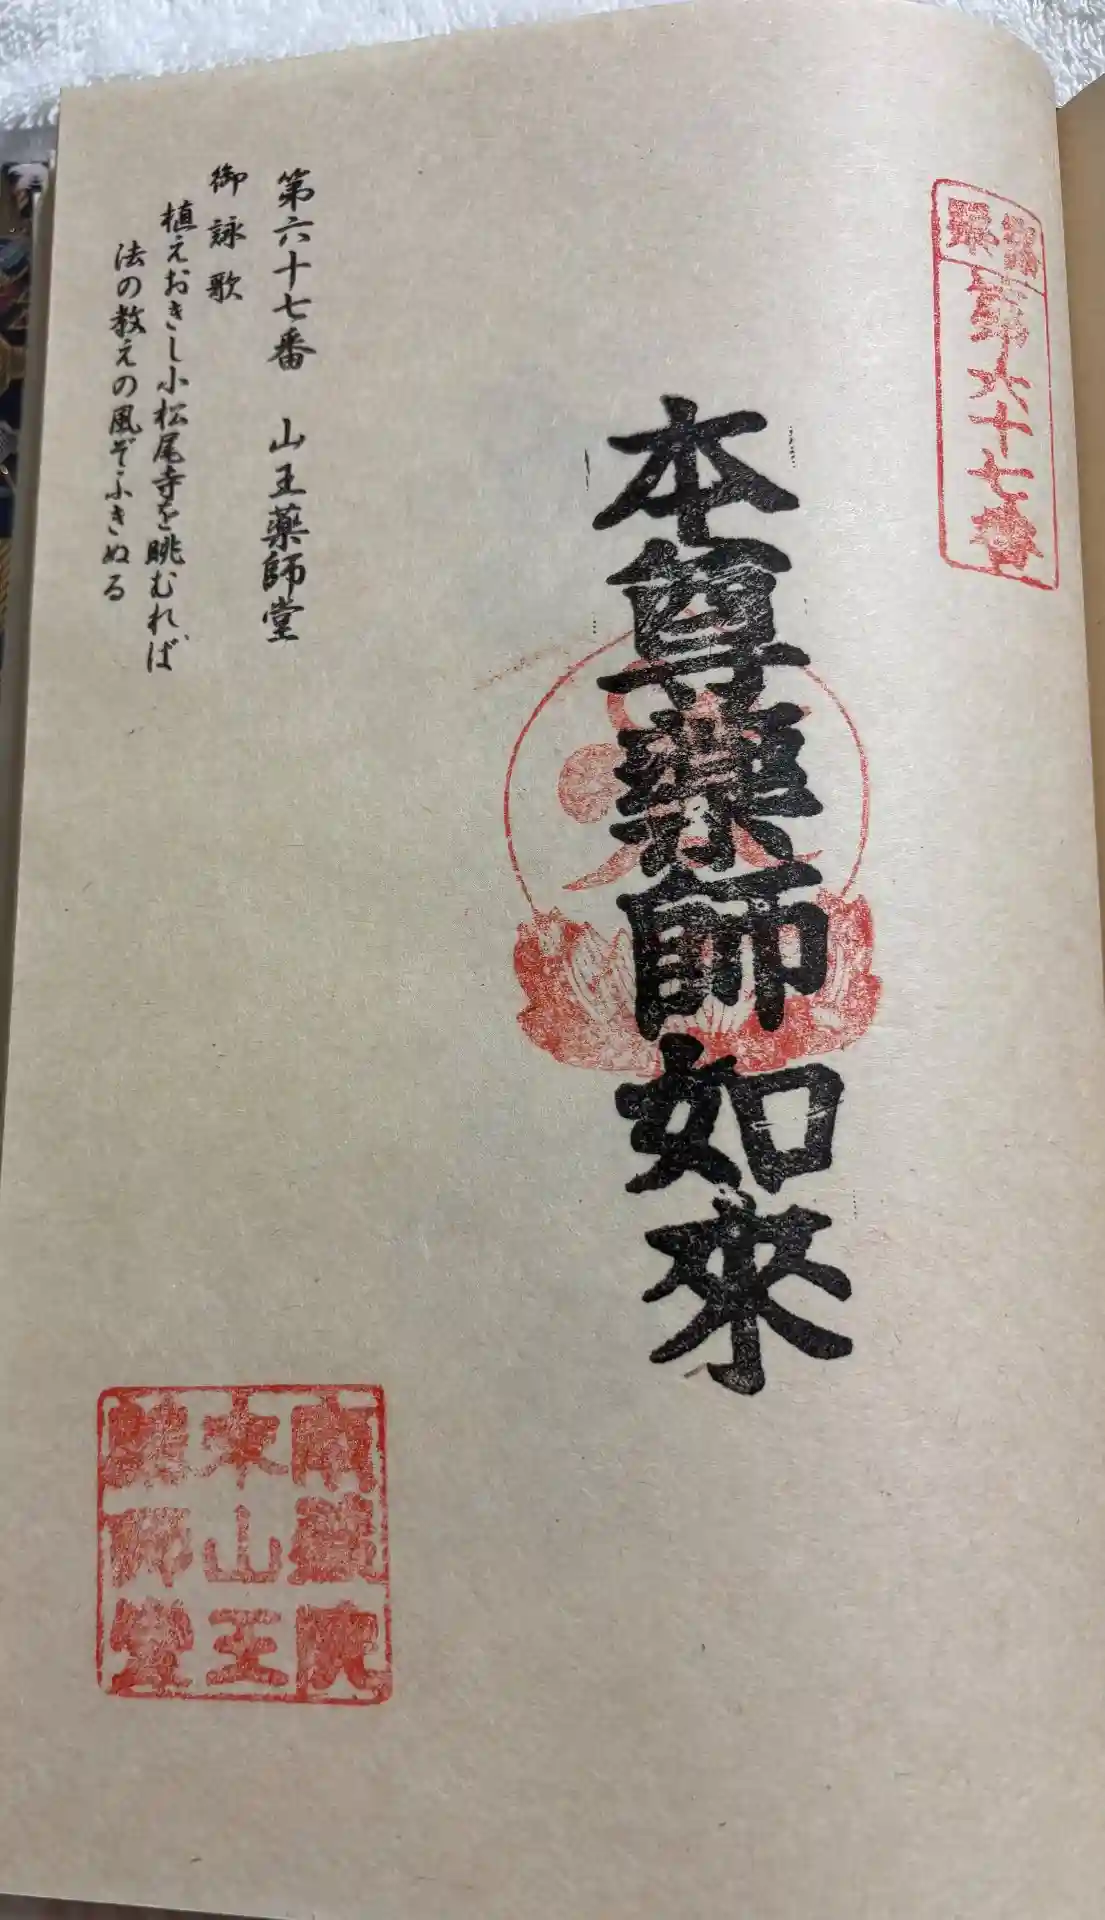 第六十七番
本尊薬師如來
第六十七番　山王薬師堂
御詠歌
植えおきし小松尾寺を眺むれば
法の教えの風ぞふきぬる
南蔵院
末山王
薬師堂